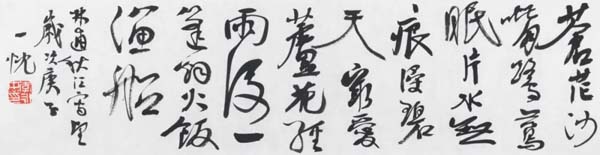 蒼茫沙
嘴鷺鷥
眠片水無
痕浸碧
天最愛
蘆花經
雨後一
篷烟火飯
漁船
林逋秋江寫望
歲次庚子
一忱